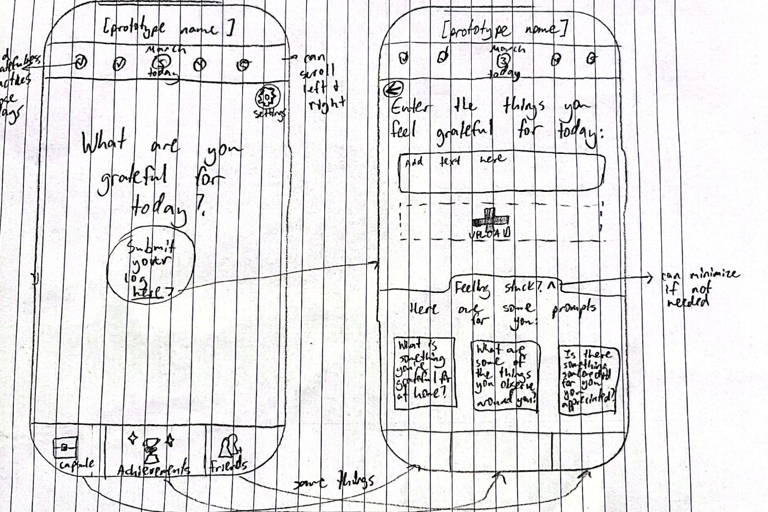 [prototype name]
March
3
today
can
scroll
left &
right
settings
What are you
grateful for
today?
Submit
your
log
here?
capsule
Achievements
friends
some things
[prototype name]
March
3
today
Enter the things you
feel grateful for today:
Add text here
UPLOAD
Feeling stuck? ^
can minimize
if not
needed
Here are some prompts
for you:
What is
something
you're
grateful for
at home?
What are
some of
the things
you observe
around you?
Is there
something
for you
you
appreciated?